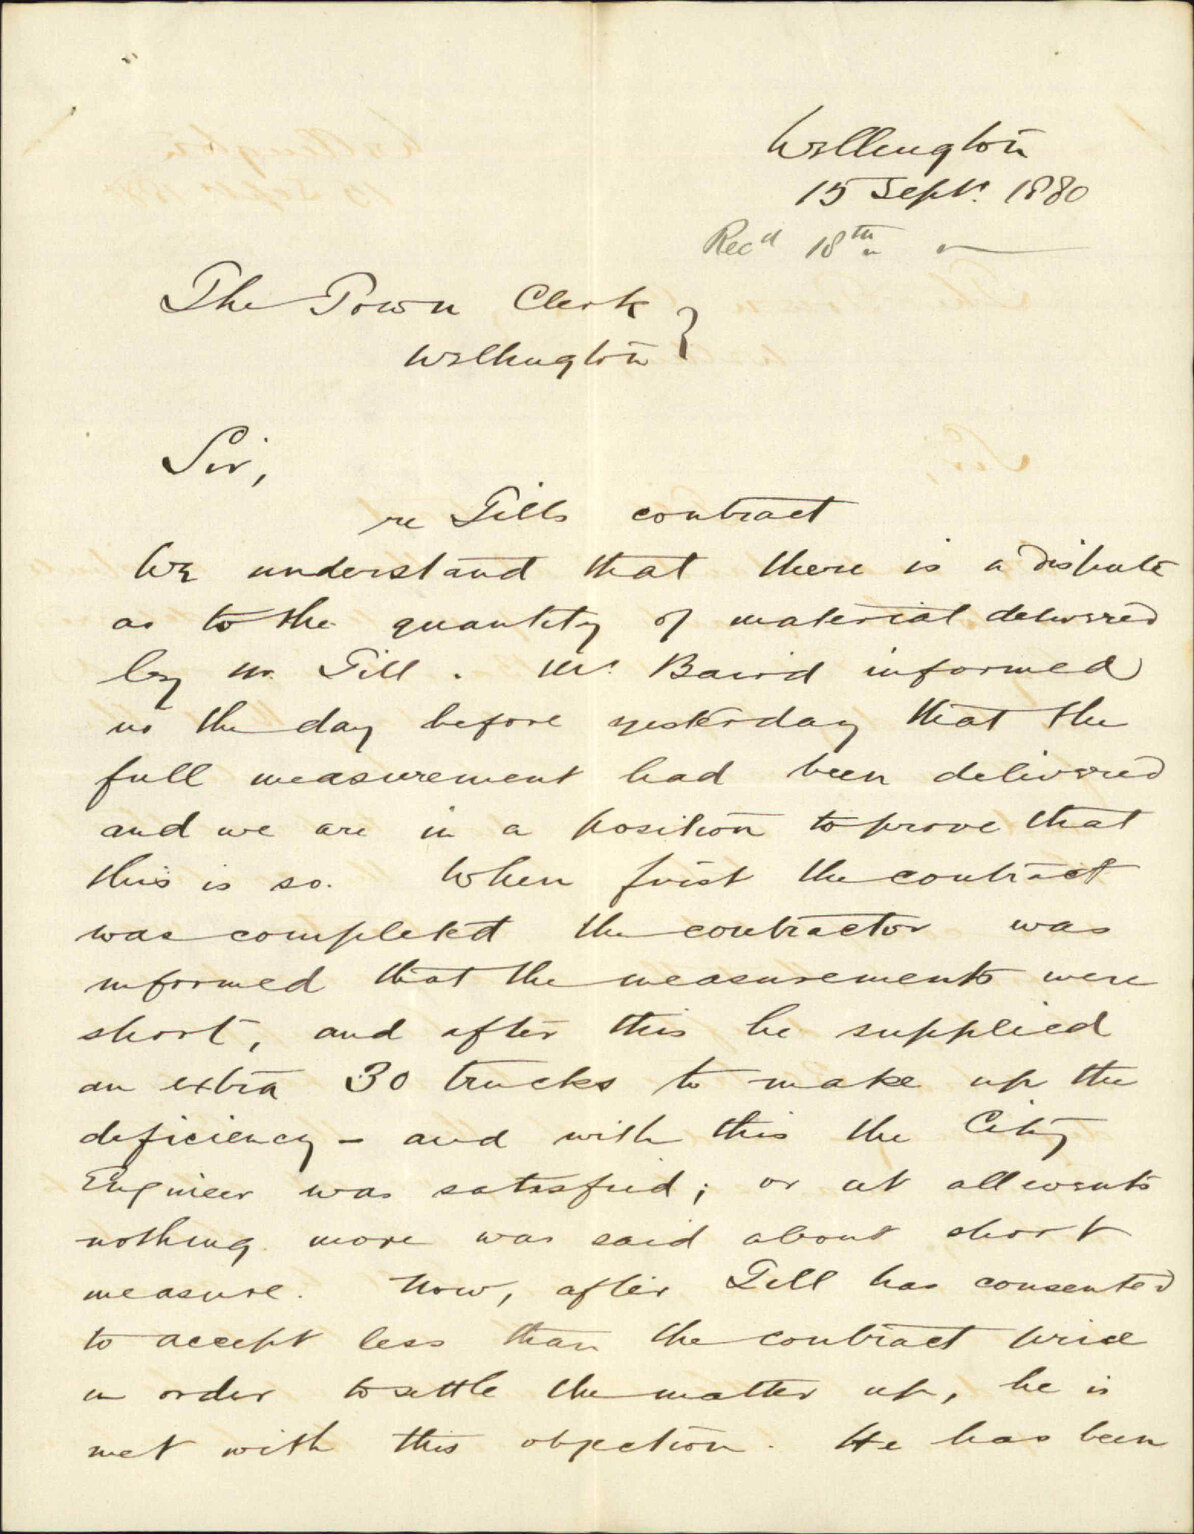 Wellington
15 Sept. 1880
Recd 18th
The Town Clerk }
Wellington
Sir,
re Tills contract
We understand that there is a dispute
as to the quantity of material delivered
by Mr. Till. Mr. Baird informed
us the day before yesterday that the
full measurement had been delivered
and we are in a position to prove that
this is so. When first the contract
was completed the contractor was
informed that the measurements were
short, and after this he supplied
an extra 30 trucks to make up the
deficiency - and with this the City
Engineer was satisfied; or at all events
nothing more was said about short
measure. Now, after Till has consented
to accept less than the contract price
in order to settle the matter up, he is
met with this objection. He has been